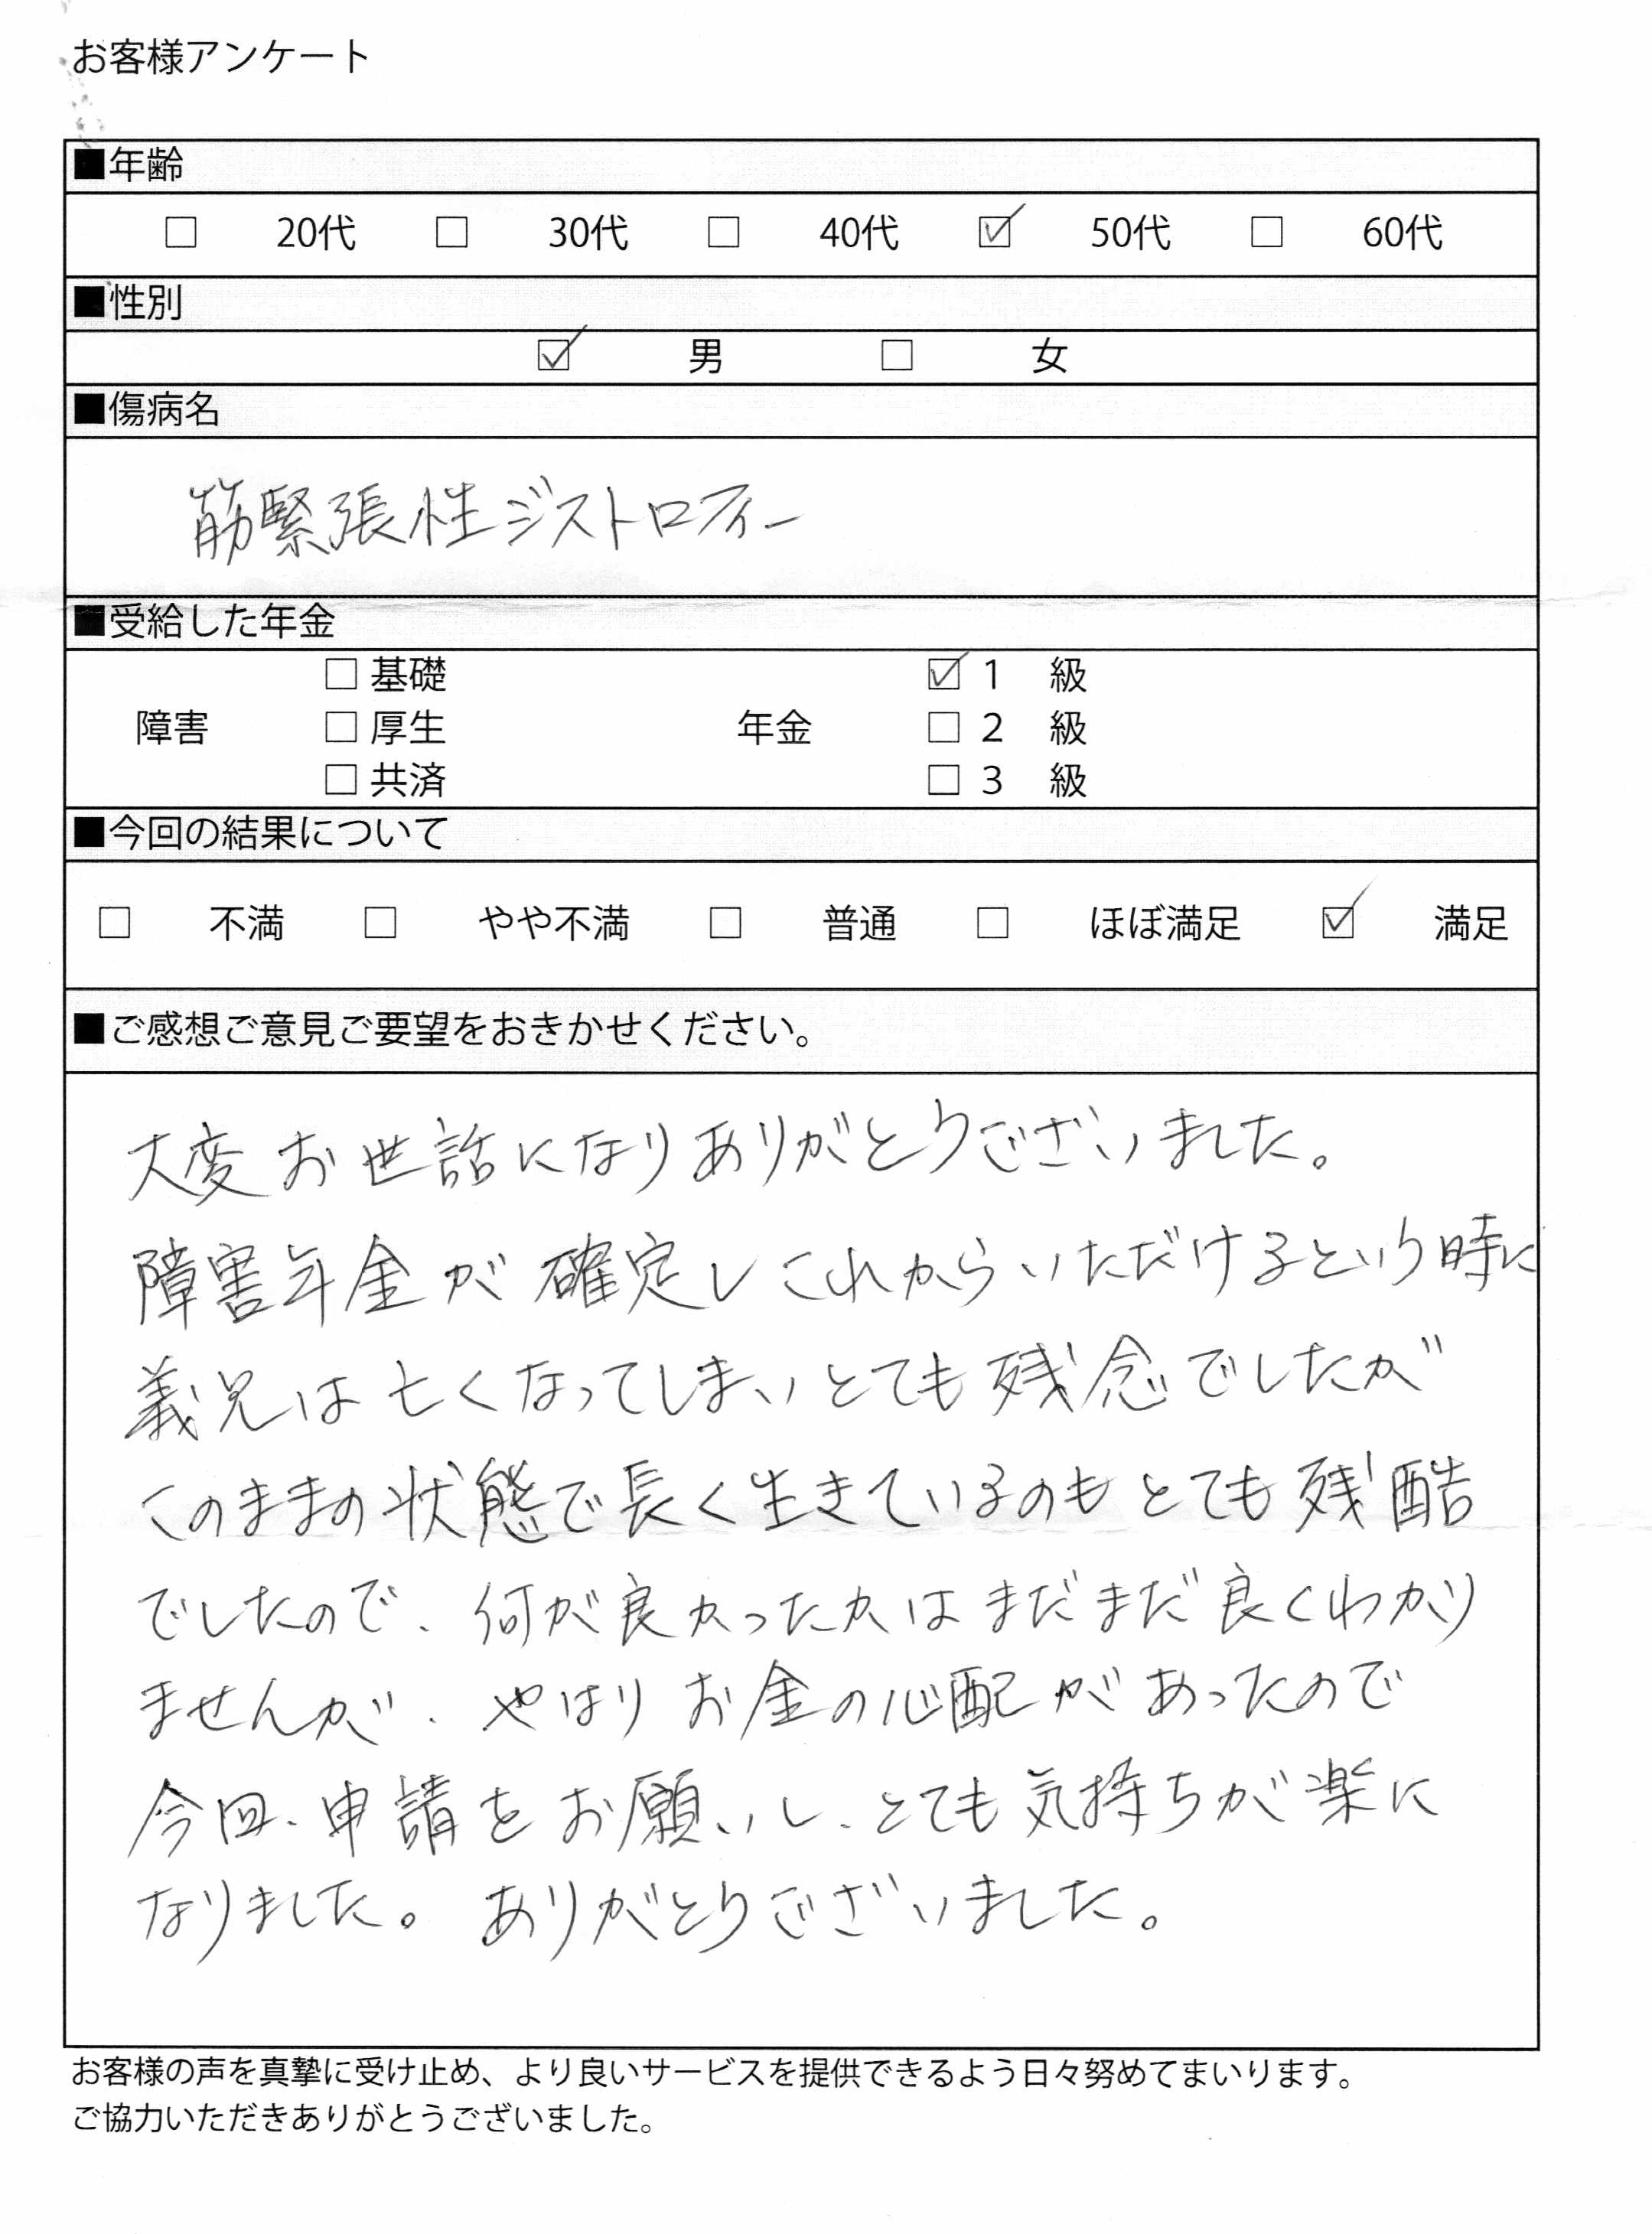 お客様アンケート
■年齢
□ 20代 □ 30代 □ 40代 ☑ 50代 □ 60代
■性別
☑ 男 □ 女
■傷病名
筋緊張性ジストロフィー
■受給した年金
□ 基礎 ☑ 1 級
障害 □ 厚生 年金 □ 2 級
□ 共済 □ 3 級
■今回の結果について
□ 不満 □ やや不満 □ 普通 □ ほぼ満足 ☑ 満足
■ご感想ご意見ご要望をおきかせください。
大変お世話になりありがとうございました。
障害年金が確定しこれからいただけるという時に
義兄は亡くなってしまいとても残念でしたが
このままの状態で長く生きているのもとても残酷
でしたので、何が良かったかはまだまだ良くわかり
ませんが、やはりお金の心配があったので
今回、申請をお願いし、とても気持ちが楽に
なりました。ありがとうございました。
お客様の声を真摯に受け止め、より良いサービスを提供できるよう日々努めてまいります。
ご協力いただきありがとうございました。